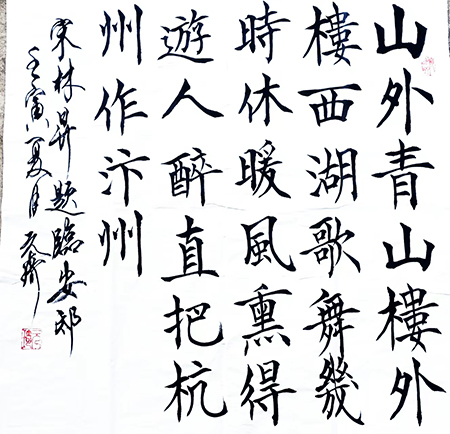 山外青山樓外
樓西湖歌舞幾
時休暖風熏得
遊人醉直把杭
州作汴州
宋林昇題臨安邸
壬寅夏月